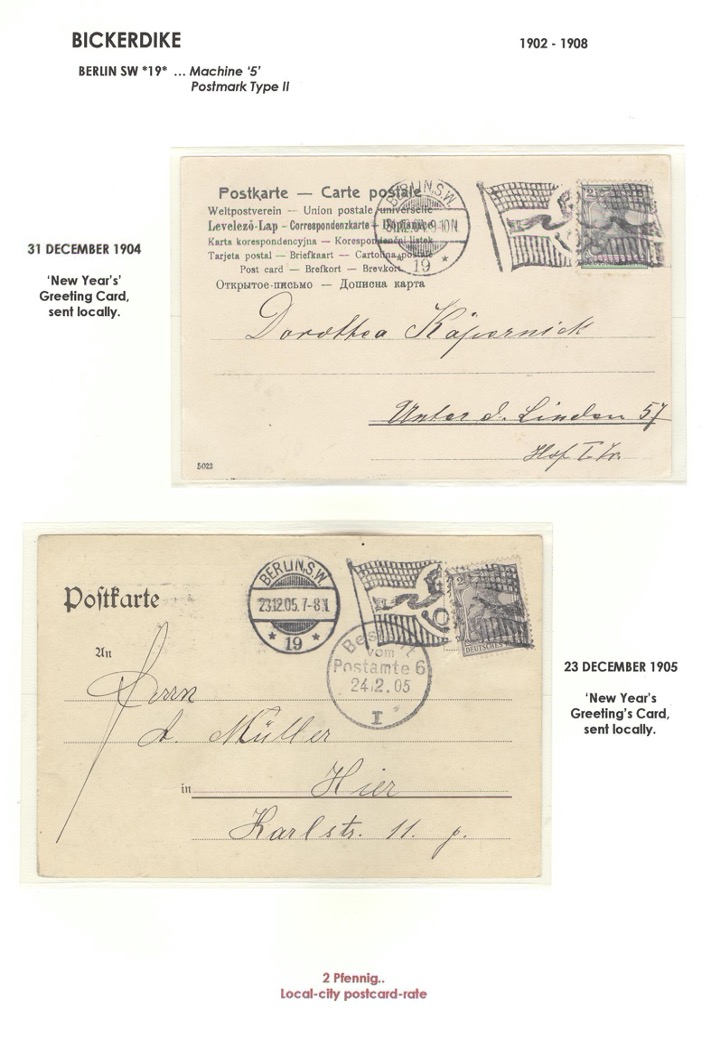 BICKERDIKE
1902 - 1908
BERLIN SW *19* ... Machine ‘5’
Postmark Type II
31 DECEMBER 1904
‘New Year’s’
Greeting Card,
sent locally.
Postkarte — Carte postale
Weltpostverein — Union postale universelle
Levelező-Lap — Correspondenzkarte — Dopisnice
Karta korespondencyjna — Korespondenční lístek
Tarjeta postal — Briefkaart — Cartolina postale
Post card — Brefkort — Brevkort
Открытое-письмо — Дописна карта
BERLIN,S.W.
31.12.04.9-10N
* 19 *
Dorothea Käpernick
Unter d. Linden 57
Hof
5022
Postkarte
BERLIN,S.W
23.12.05.7-8N
* 19 *
2
DEUTSCHES
Bestellt
vom
Postamte 6
24.12.05
I *
An
Herrn
A. Müller
in Hier
Karlstr. 11. p.
23 DECEMBER 1905
‘New Year’s
Greeting’s Card,
sent locally.
2 Pfennig..
Local-city postcard-rate